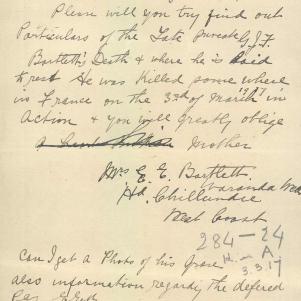 Please will you try find out
Particulars of the Late Private G. J.
Bartlett's Death & where he is laid
to rest He was killed some where
in France on the 3rd of March 1917 in
Action & you will Greatly oblige
Mother
Mrs E. E. Bartlett
Chillundie
West Coast
284-24
Can I get a Photo of his Grave
K. in A
3.3.17
also information regarding the defered
Pay